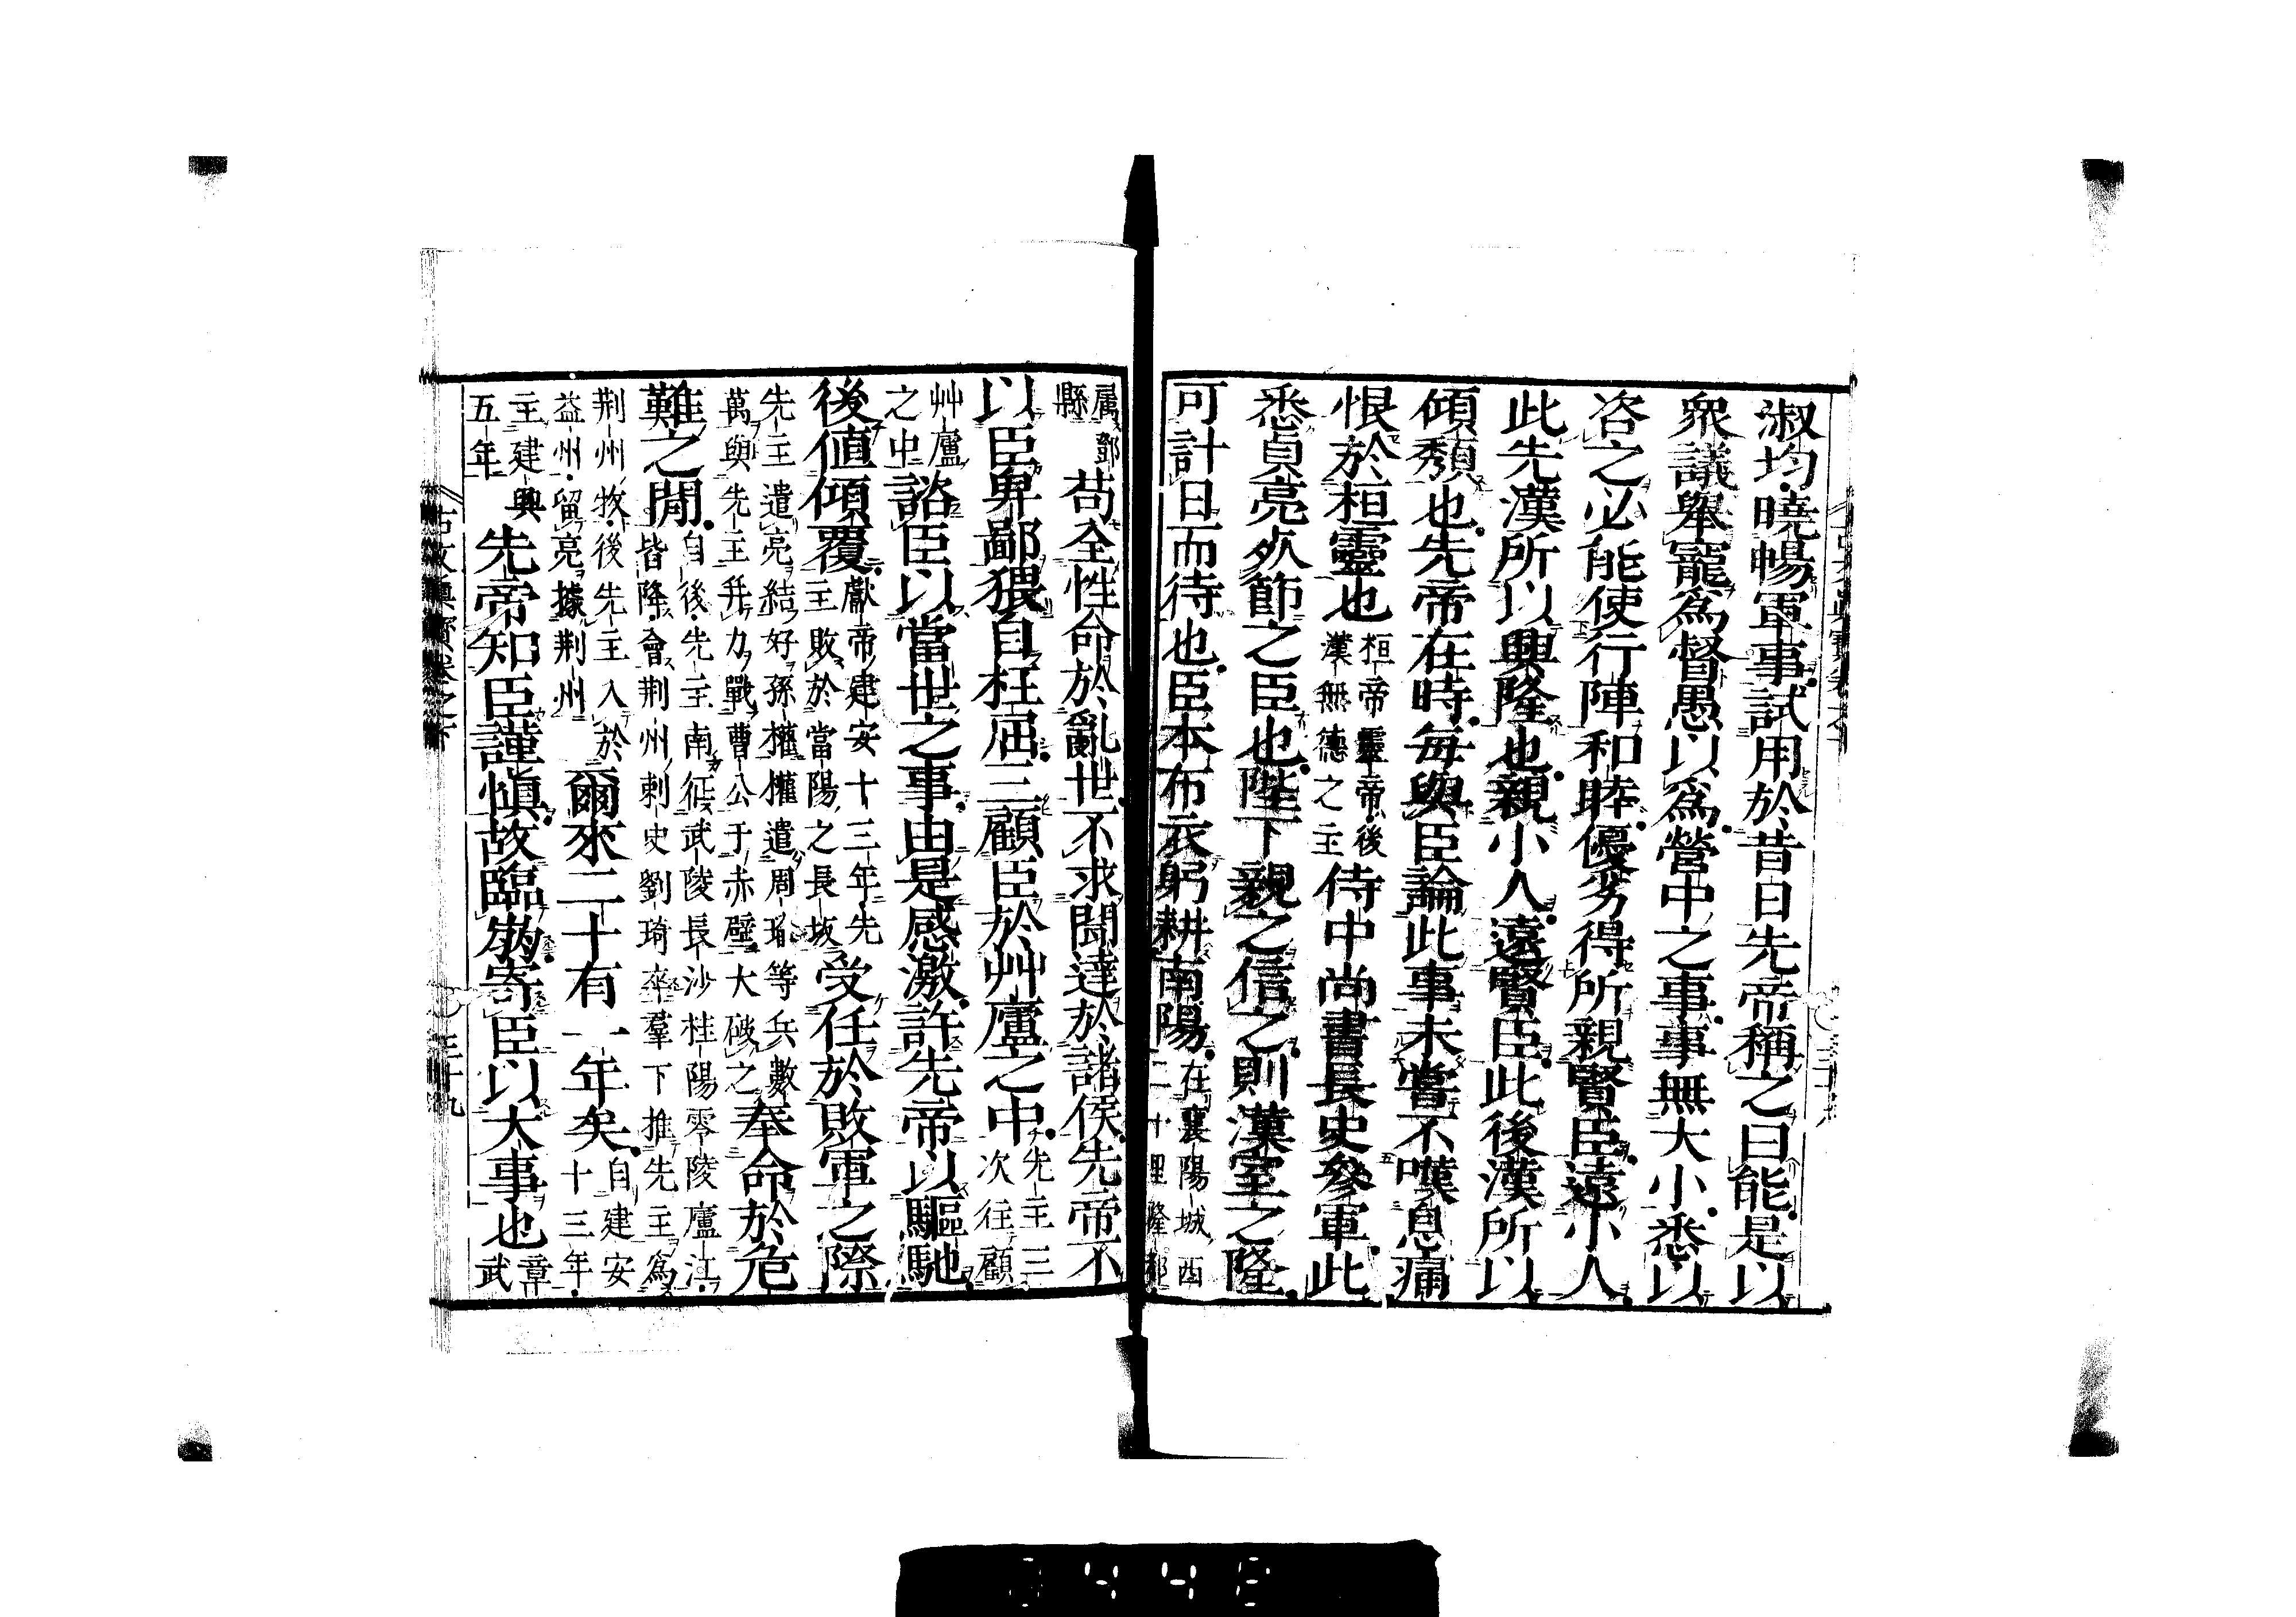 淑均曉暢軍事試用於昔日先帝稱之曰能是以
衆議舉寵爲督愚以爲營中之事事無大小悉以
咨之必能使行陣和睦優劣得所親賢臣遠小人
此先漢所以興隆也親小人遠賢臣此後漢所以
傾頽也先帝在時每與臣論此事未嘗不嘆息痛
恨於桓靈也桓帝靈帝後漢無德之主侍中尚書長史參軍此
悉貞亮死節之臣也陛下親之信之則漢室之隆
可計日而待也臣本布衣躬耕南陽在襄陽城西二十里隆
属鄧縣苟全性命於亂世不求聞達於諸侯先帝不
以臣卑鄙猥自枉屈三顧臣於艸廬之中先主三次往顧
艸廬之中諮臣以當世之事由是感激許先帝以驅馳
後値傾覆獻帝建安十三年先主敗於當陽之長坂受任於敗軍之際
先主遣亮結好孫權權遣周瑜等兵數萬與先主并力戰曹公于赤壁大破之奉命於危
難之閒自後先主南征武陵長沙桂陽零陵廬江皆降會荆州刺史劉琦卒羣下推先主爲
荆州牧後先主入於益州留亮據荆州爾來二十有一年矣自建安十三年
主建興五年先帝知臣謹愼故臨崩寄臣以大事也章武